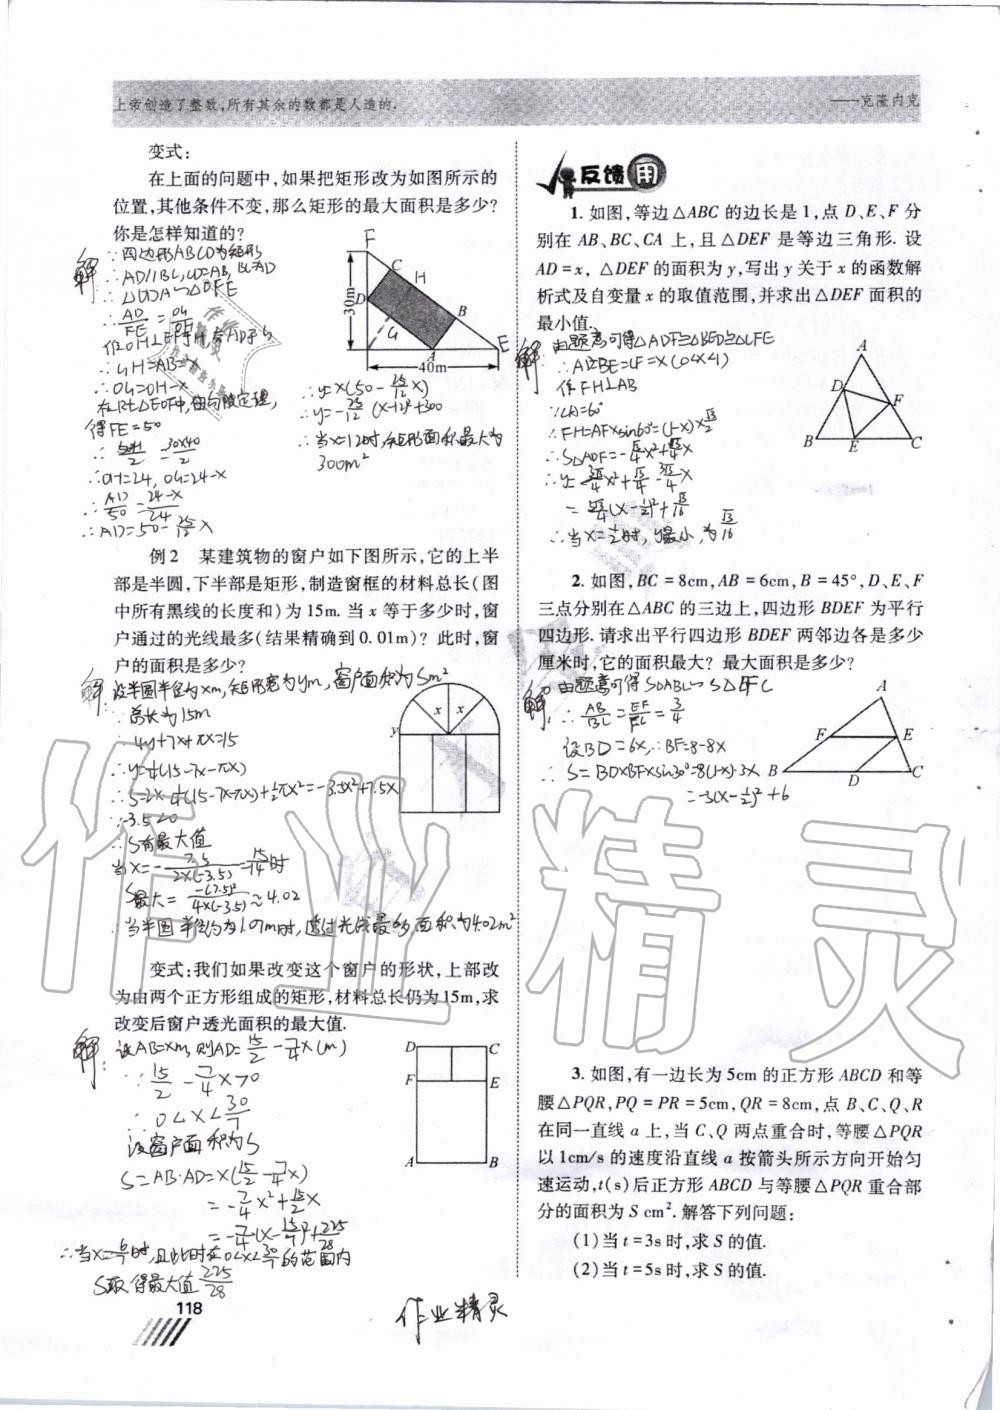 上帝创造了整数,所有其余的数都是人造的.
——克隆内克
变式:
在上面的问题中,如果把矩形改为如图所示的
位置,其他条件不变,那么矩形的最大面积是多少?
你是怎样知道的?
解:∵四边形ABCD为矩形
∴AD//BC,CD=AB,BC=AD
F
C
H
D
B
G
A
E
30m
40m
∴GH=AB=x
∴OG=OH-x
在Rt△EOF中,由勾股定理,
得FE=50
∴OH=24,OG=24-x
∴AD/50=(24-x)/24
∴AD=50-25/12x
∴y=x(50-25/12x)
∴y=-25/12(x-12)²+300
∴当x=12时,矩形面积最大为
300m²
例2 某建筑物的窗户如下图所示,它的上半
部是半圆,下半部是矩形,制造窗框的材料总长(图
中所有黑线的长度和)为15m.当x等于多少时,窗
户通过的光线最多(结果精确到0.01m)?此时,窗
户的面积是多少?
解:设半圆半径为xm,矩形宽为ym,窗户面积为Sm²
∵总长为15m
∴4y+7x+πx=15
x x
y
∴y=1/4(15-7x-πx)
∴S=2x·1/4(15-7x-πx)+1/2πx²=-3.5x²+7.5x
∵-3.5<0
∴S有最大值
当x=-7.5/2×(-3.5)=15/14时
S最大=-(7.5)²/4×(-3.5)≈4.02
∴当半圆半径约为1.07m时,透过光线最多,面积为4.02m²
变式:我们如果改变这个窗户的形状,上部改
为由两个正方形组成的矩形,材料总长仍为15m,求
改变后窗户透光面积的最大值.
解:设AB=xm,则AD=15/2-7/4x(m)
∵15/2-7/4x>0
∴0<x<30/7
设窗户面积为S
S=AB·AD=x(15/2-7/4x)
=-7/4x²+15/2x
=-7/4(x-15/7)²+225/28
D C
F E
A B
S取得最大值225/28
118
反馈 用
1.如图,等边△ABC的边长是1,点D、E、F分
别在AB、BC、CA上,且△DEF是等边三角形.设
AD=x,△DEF的面积为y,写出y关于x的函数解
析式及自变量x的取值范围,并求出△DEF面积的
最小值.
解:由题意可得△ADF≌△BED≌△CFE
∴AD=BE=CF=x(0<x<1)
作FH⊥AB
∵∠A=60°
∴FH=AF×sin60°=(1-x)×√3/2
∴S△ADF=-√3/4x²+√3/4x
∴y=3√3/4x²+√3/4-3√3/4x
=3√3/4(x-1/2)²+√3/16
∴当x=1/2时,y最小,为√3/16
A
D
F
B E C
2.如图,BC=8cm,AB=6cm,B=45°,D、E、F
三点分别在△ABC的三边上,四边形BDEF为平行
四边形.请求出平行四边形BDEF两邻边各是多少
厘米时,它的面积最大?最大面积是多少?
解:由题意可得
∴AB/BC=EF/FC=3/4
设BD=6x,∴BF=8-8x
∴S=BD×BF×sin30°=8(1-x)·3x
A
F E
B D C
3.如图,有一边长为5cm的正方形ABCD和等
腰△PQR,PQ=PR=5cm,QR=8cm,点B、C、Q、R
在同一直线a上,当C、Q两点重合时,等腰△PQR
以1cm/s的速度沿直线a按箭头所示方向开始匀
速运动,t(s)后正方形ABCD与等腰△PQR重合部
分的面积为S cm².解答下列问题:
(1)当t=3s时,求S的值.
(2)当t=5s时,求S的值.
作业精灵